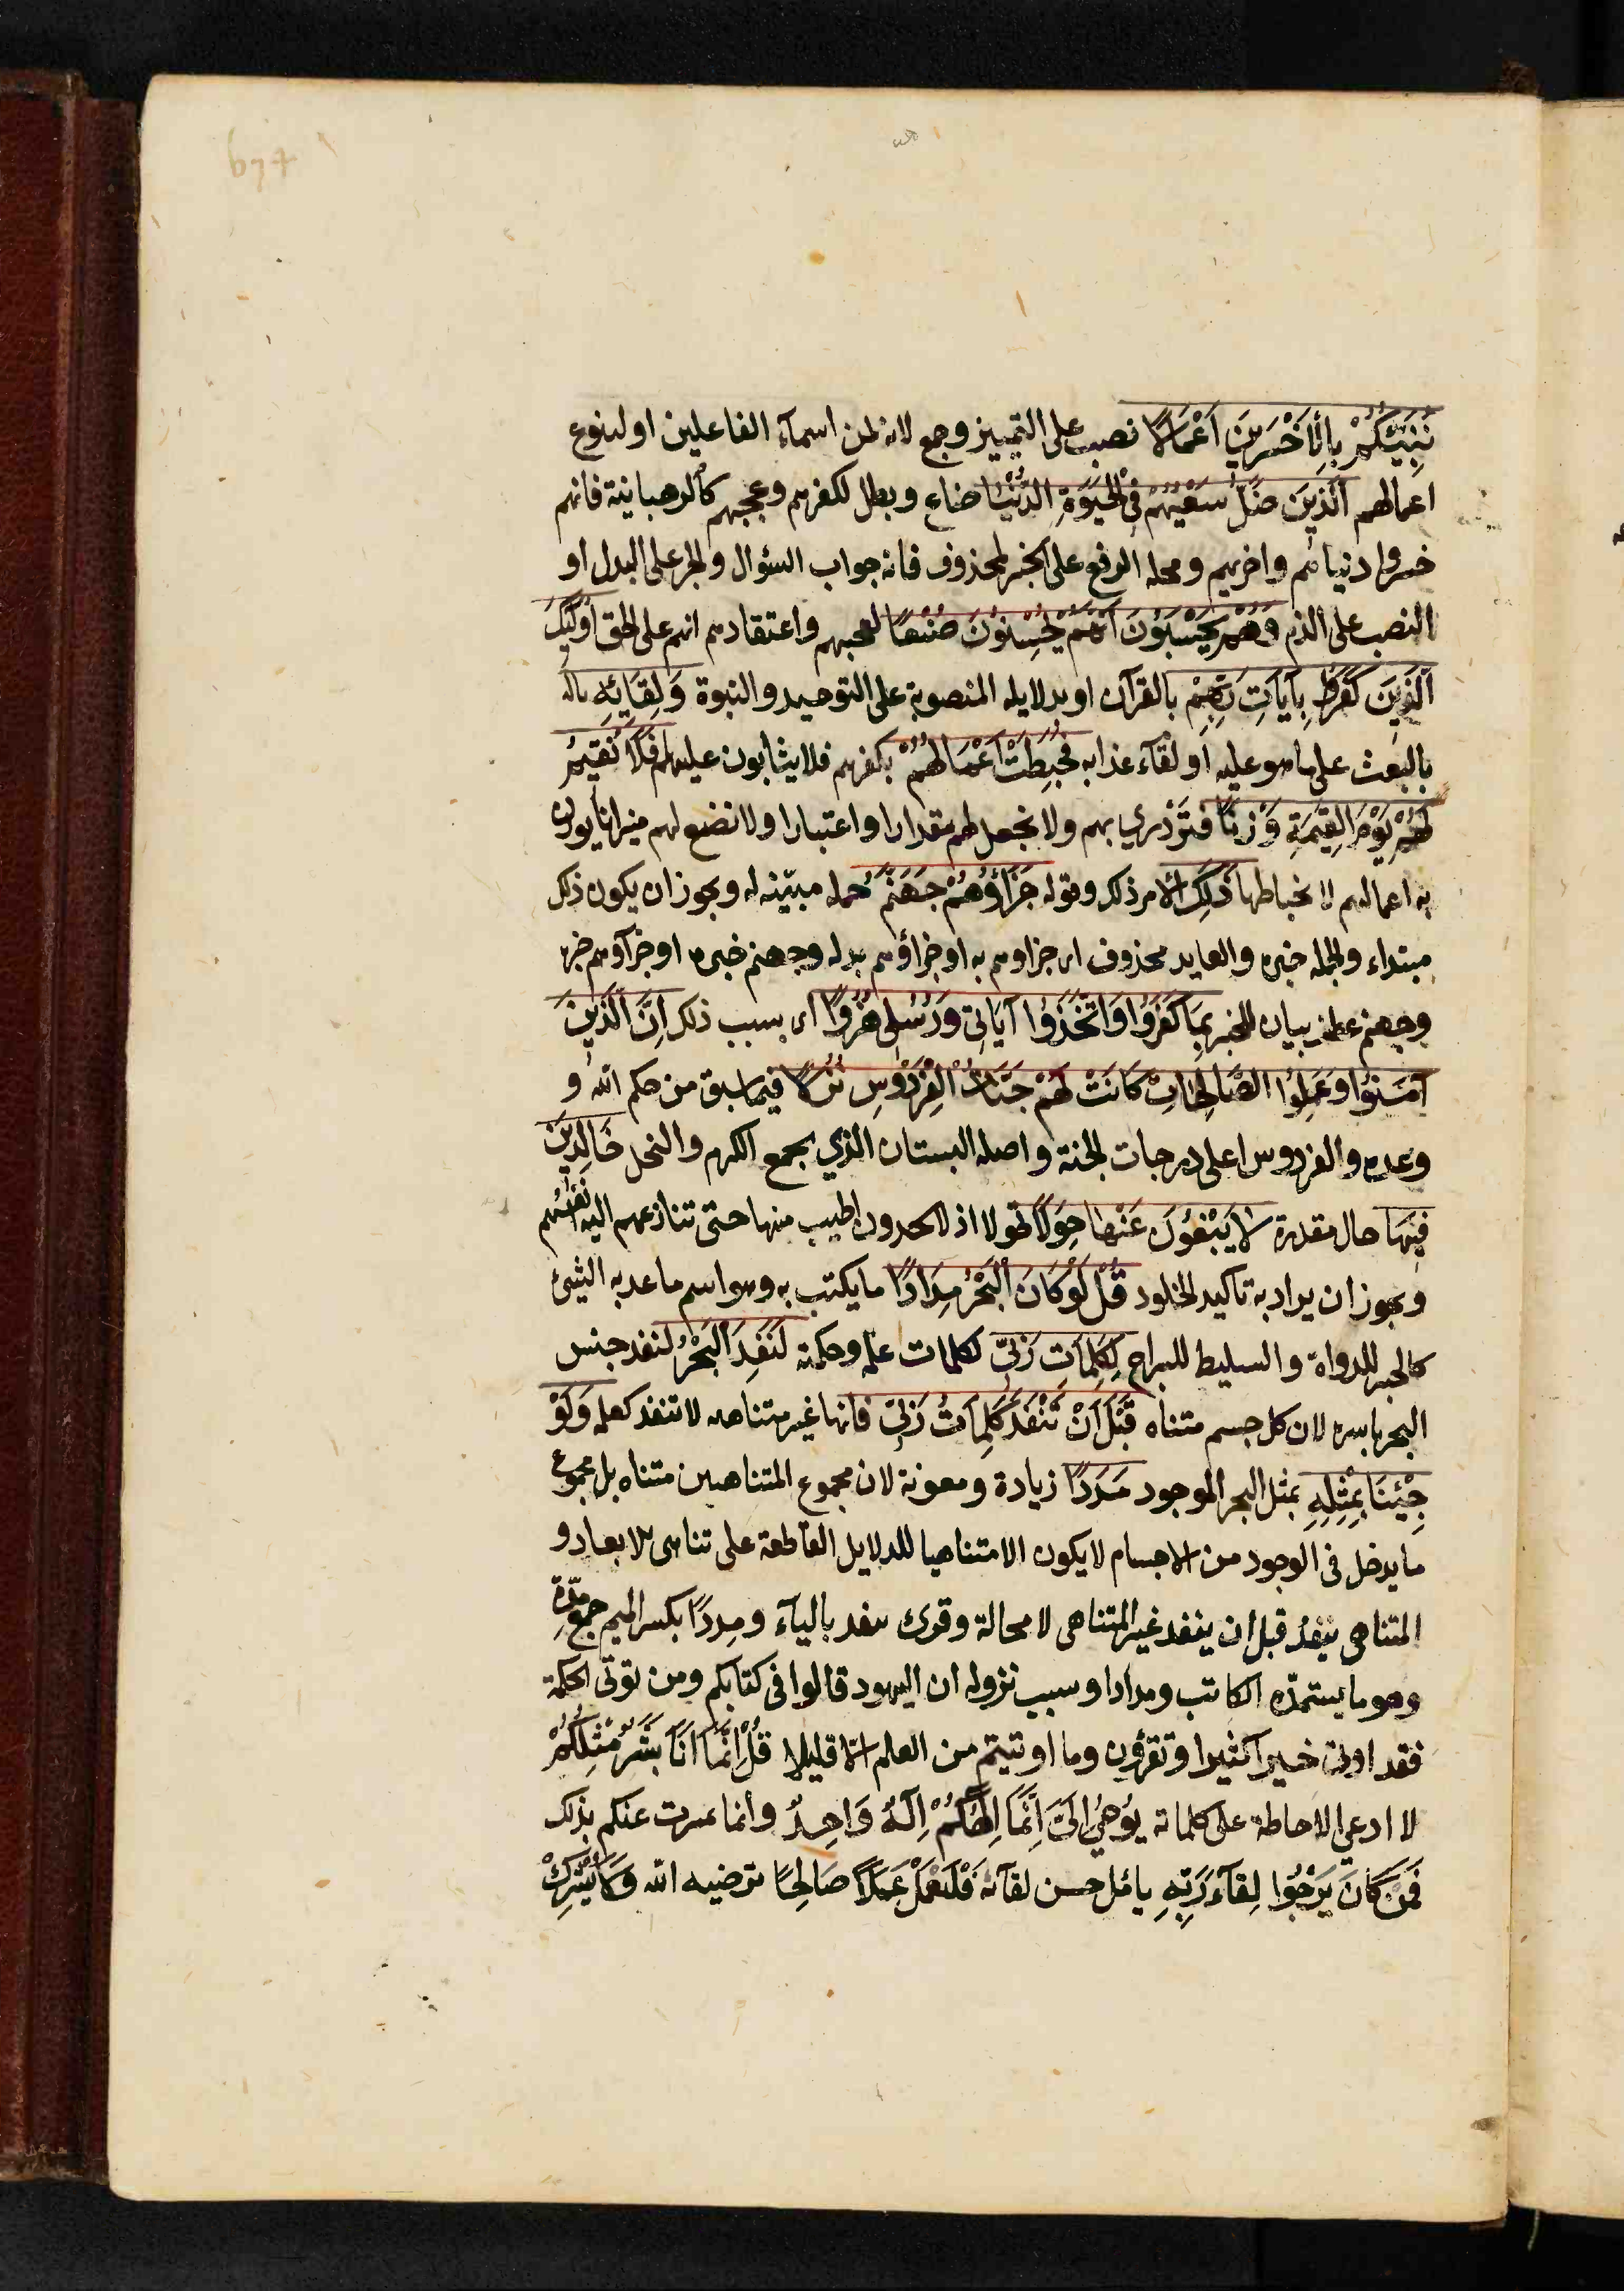 نُنَبِّئُكُمْ بِالْأَخْسَرِينَ أَعْمَالًا نصب على التمييز وجمع لانه من اسمآء الفاعلين او لتنوع
اعمالهم اَلَّذِينَ ضَلَّ سَعْيُهُمْ فِي الْحَيَوةِ الدُّنْيَا ضاع وبطل لكفرهم وعجبهم كالرهبانية فانهم
خسروا دنياهم واخريهم ومحله الرفع على الخبر لمحذوف فانه جواب السؤال والجر على البدل او
النصب على الذم وَهُمْ يَحْسَبُونَ أَنَّهُمْ يُحْسِنُونَ صُنْعًا لعجبهم واعتقادهم انهم على الحق أُولٰئِكَ
الَّذِينَ كَفَرُوا بِآيَاتِ رَبِّهِمْ بالقرآن او بدلايله المنصوبة على التوحيد والنبوة وَلِقَائِهِ
بالبعث على ما هو عليه او لقآء عذابه فَحَبِطَتْ أَعْمَالُهُمْ بكفرهم فلا يثابون عليها فَلَا نُقِيمُ
لَهُمْ يَوْمَ الْقِيٰمَةِ وَزْنًا فتزدري بهم ولا نجعل لهم مقدارا واعتبارا ولا نضع لهم ميزانا يوزن
به اعمالهم لانحباطها ذٰلِكَ الامر ذلك وقوله جَزَاؤُهُمْ جَهَنَّمُ جمله مبيّنه له ويجوز ان يكون ذلك
مبتداء والجمله خبره والعايد محذوف اى جزاوهم به او جزاؤهم بدله وجهنم خبره او جزآوهم خبره
وجهنم عطف بيان للخبر بِمَا كَفَرُوا وَاتَّخَذُوا آيَاتِي وَرُسُلِي هُزُوًا اى بسبب ذلك إِنَّ الَّذِينَ
آمَنُوا وَعَمِلُوا الصَّالِحَاتِ كَانَتْ لَهُمْ جَنَّاتُ الْفِرْدَوْسِ نُزُلًا فيما سبق من حكم الله و
وعده والفردوس اعلى درجات الجنة واصله البستان الذي يجمع الكرم والنخل خَالِدِينَ
فِيهَا حال مقدرة لَا يَبْغُونَ عَنْهَا حِوَلًا تحولا اذ لا يجدون اطيب منها حتى تنازعهم اليه انفسهم
ويجوز ان يراد به تاكيد الخلود قُلْ لَوْ كَانَ الْبَحْرُ مِدَادًا ما يكتب به وهو اسم ما عد به الشئ
كالحبر للدواة والسليط للسراج لِكَلِمَاتِ رَبِّي لكلمات علمه وحكمته لَنَفِدَ الْبَحْرُ لنفد جنس
البحر باسره لان كل جسم متناه قَبْلَ أَنْ تَنْفَدَ كَلِمَاتُ رَبِّي فانها غير متناهيه لا تنفد كعلمه وَلَوْ
جِئْنَا بِمِثْلِهِ بمثل البحر الموجود مَدَدًا زيادة ومعونة لان مجموع المتناهيين متناه بل مجموع
ما يدخل في الوجود من الاجسام لا يكون الا متناهيا للدلايل القاطعة على تناهى الابعاد و
المتناهى ينفد قبل ان ينفد غير المتناهى لا محالة وقرئ ينفد باليآء ومِددًا بكسر الميم جمع مِدّة
وهو ما يستمدّه الكاتب ومدادا وسبب نزوله ان اليهود قالوا في كتابكم ومن يؤتى الحكمة
فقد اوتى خيرا كثيرا وتقرؤن وما اوتيتم من العلم الا قليلا قُلْ إِنَّمَا أَنَا بَشَرٌ مِثْلُكُمْ
لا ادعى الاحاطة على كلماته يُوحَىٰ إِلَيَّ أَنَّمَا إِلٰهُكُمْ إِلٰهٌ وَاحِدٌ وانما تميزت عنكم بذلك
فَمَنْ كَانَ يَرْجُوا لِقَآءَ رَبِّهِ يامل حسن لقآئه فَلْيَعْمَلْ عَمَلًا صَالِحًا ترضيه الله وَلَا يُشْرِكْ